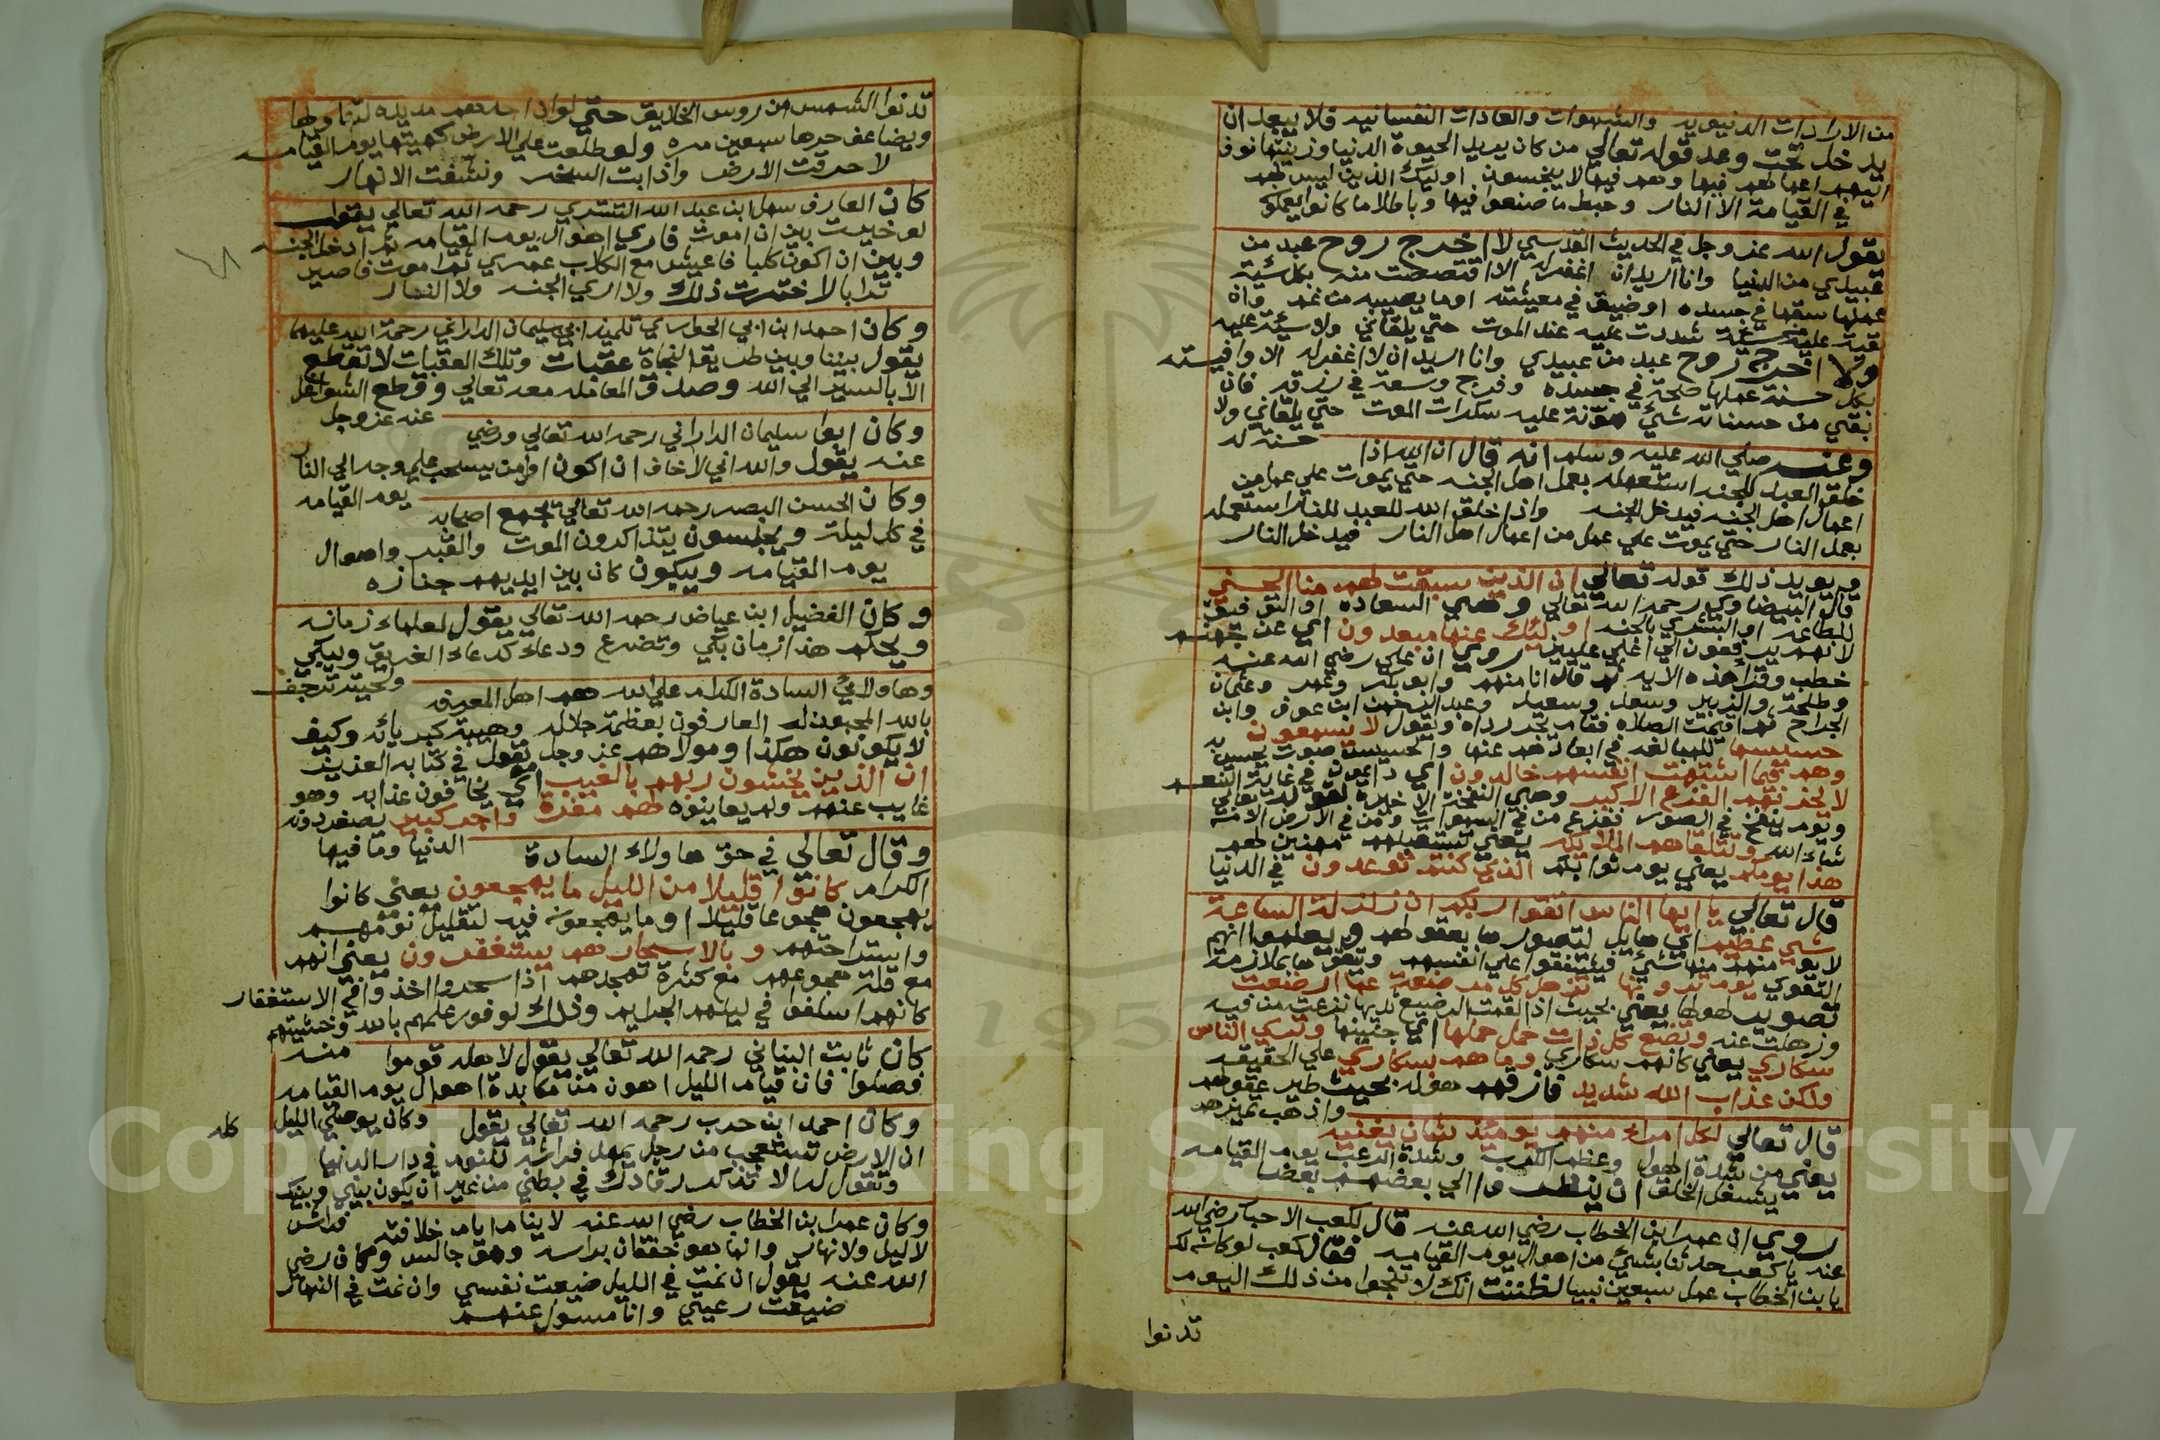 من الارادات الدنيويه والشهوات والعادات النفسانيه فلا يبعد ان
يدخل تحت وعد قوله تعالي من كان يريد الحيوة الدنيا وزينتها نوف
اليهم اعمالهم فيها وهم فيها لا يبخسون اوليك الذين ليس لهم
في القيامة الا النار وحبط ما صنعوا فيها وباطلا ما كانوا يعملو
يقول الله عز وجل في الحديث القدسي لا اخرج روح عبد من
عبيدي من الدنيا وانا اريد ان اغفر له الا اقتصصت منه بكل سئية
عملها سقما في جسده او ضيق في معيشته او ما يصيبه من غم وان
بقية عليه سيئة شددت عليه عند الموت حتي يلقاني ولا سيئة عليه
ولا اخرج روح عبد من عبيدي وانا اريد ان لا اغفر له الا وافيته
بكل حسنة عملها صحة في جسده وفرح وسعة في رزقه فان
بقي من حسناته شئ هونة عليه سكرات الموت حتي يلقاني ولا
حسنة له
وعنه صلي الله عليه وسلم انه قال ان الله اذا
خلق العبد للجنه استعمله بعمل اهل الجنه حتي يموت علي عمل من
اعمال اهل الجنه فيدخل الجنه واذا خلق الله للعبد للنار استعمله
بعمل النار حتي يموت علي عمل من اعمال اهل النار فيدخل النار
ويويد ذلك قوله تعالي ان الذين سبقت لهم منا الحسني
قال البيضاوي رحمه الله تعالي وهي السعاده او التوفيق
للطاعه او البشري بالجنه اوليك عنها مبعدون اي عن جهنم
لانهم يرفعون الي اعلي عليين روي ان علي رضي الله عنه
خطب وقرأ هذه الايه ثم قال انا منهم وابو بكر وعمر وعثمان
وطلحة والزبير وسعد وسعيد وعبد الرحمن ابن عوف وابن
الجراح ثم اقيمت الصلاه فقام يجر رداه ويقول لا يسمعون
حسيسها للمبالغه في ابعادهم عنها والحسيسة صوت يحسن به
وهم فيما اشتهت انفسهم خالدون اي دايمون في غاية التنعم
لا يحزنهم الفزع الاكبر وهي النفخة الاخيره لقوله تعالي
ويوم ينفخ في الصور ففزع من في السموات ومن في الارض الا من
شاء الله وتتلقاهم الملايكه يعني تستقبلهم مهنين لهم
هذا يومكم يعني يوم ثوابكم الذي كنتم توعدون في الدنيا
قال تعالي يا ايها الناس اتقوا ربكم ان زلزلة الساعة
شي عظيم اي هايل ليتصوروها بعقولهم ويعلموا انهم
لا يومنهم منها شئ فيتقوا علي انفسهم ويتقوها بملازمة
التقوي يوم ترونها تذهل كل مرضعة عما ارضعت
تصوير لهولها يعني بحيث اذا القمت الرضيع ثديها نزعت من فيه
وزهلت عنه وتضع كل ذات حمل حملها اي جنينها وتري الناس
سكاري يعني كانهم سكاري وما هم بسكاري علي الحقيقه
ولكن عذاب الله شديد فازقهم هوله بحيث طير عقولهم
واذهب تميزهم
قال تعالي لكل امراء منهم يومئذ شان يغنيه
يعني من شدة الهول وعظم الكرب وشدة الرعب يوم القيامه
يشغل الخلق ان ينظر والي بعضهم بعضا
روي ان عمر ابن الخطاب رضي الله عنه قال لكعب الاحبار رضي الله
عنه يا كعب حدثنا بشئ من اهوال يوم القيامه فقال كعب لو كان لك
يا بن الخطاب عمل سبعين نبيا لظننت انك لا تنجوا من ذلك اليوم
تدنوا
تدنوا الشمس من روس الخلايق حتي لو ان احدهم مد يده لتناولها
ويضاعف حرها سبعين مره ولو طلعت علي الارض كهيئتها يوم القيامه
لاحرقت الارض واذابت الصخر ونشفت الانهار
كان العارف سهل ابن عبد الله التستري رحمه الله تعالي يقول
لو خيرت بين ان اموت فاري اهوال يوم القيامه ثم ادخل الجنه
وبين ان اكون كلبا فاعيش مع الكلاب عمري ثم اموت فاصير
ترابا لاخترت ذلك ولا اري الجنه ولا النار
وكان احمد ابن ابي الحواري تلميذ ابي سليمان الداراني رحمة الله عليهما
يقول بيننا وبين طريق النجاة عقبات وتلك العقبات لا تقطع
الا بالسير الي الله وصدق المعامله معه تعالي وقطع الشواغل
عنه عز وجل
وكان ابوا سليمان الداراني رحمه الله تعالي ورضي
عنه يقول والله اني لاخاف ان اكون اول من يسحب علي وجهه الي النار
يوم القيامه
وكان الحسن البصر رحمه الله تعالي يجمع اصحابه
في كل ليلة ويجلسون يتذاكرون الموت والقبر واهوال
يوم القيامه ويبكون كان بين ايديهم جنازه
وكان الفضيل ابن عياض رحمه الله تعالي يقول لعلماء زمانه
ويحكم هذا زمان بكي وتضرع ودعاء كدعاء الغريق ويبكي
ولحيته ترجف
وهاولائ السادة الكرام علي الله هم اهل المعرفه
بالله المحبون له العارفون بعظمة جلاله وهيبة كبريائه وكيف
لا يكونون هكذا ومولاهم عز وجل يقول في كتابه العزيز
ان الذين يخشون ربهم بالغيب اي يخافون عذابه وهو
غايب عنهم ولم يعاينوه لهم مغفرة واجر كبير يصغر دونه
الدنيا وما فيها
وقال تعالي في حق هاولاء السادة
الكرام كانوا قليلا من الليل ما يهجعون يعني كانوا
يهجعون هجوعا قليلا وما يهجعون فيه لتقليل نومهم
واستراحتهم وبالاسحار هم يستغفرون يعني انهم
مع قلة هجوعهم مع كثرة تهجدهم اذا سحروا اخذوا في الاستغفار
كانهم اسلفوا في ليلهم الجرايم وذلك لوفور علمهم بالله وخشيتهم
منه
كان ثابت البناني رحمه الله تعالي يقول لاهله قوموا
فصلوا فان قيام الليل اهون من مكابدة اهوال يوم القيامه
وكان يوصلي الليل كله
وكان احمد ابن حرب رحمه الله تعالي يقول
ان الارض تستعجب من رجل يمهد فراشه للنوم في دار الدنيا
وتقول له الا تذكر رقادك في بطني من غير ان يكون بيني وبينك
فراش
وكان عمر ابن الخطاب رضي الله عنه لا ينام ايام خلافته
لا ليل ولا نهار وانما هو خفقان براسه وهو جالس وكان رضي
الله عنه يقول ان نمت في الليل ضيعت نفسي وان نمت في النهار
ضيعت رعيتي وانا مسول عنهم
Copyright © King Saud University
1957